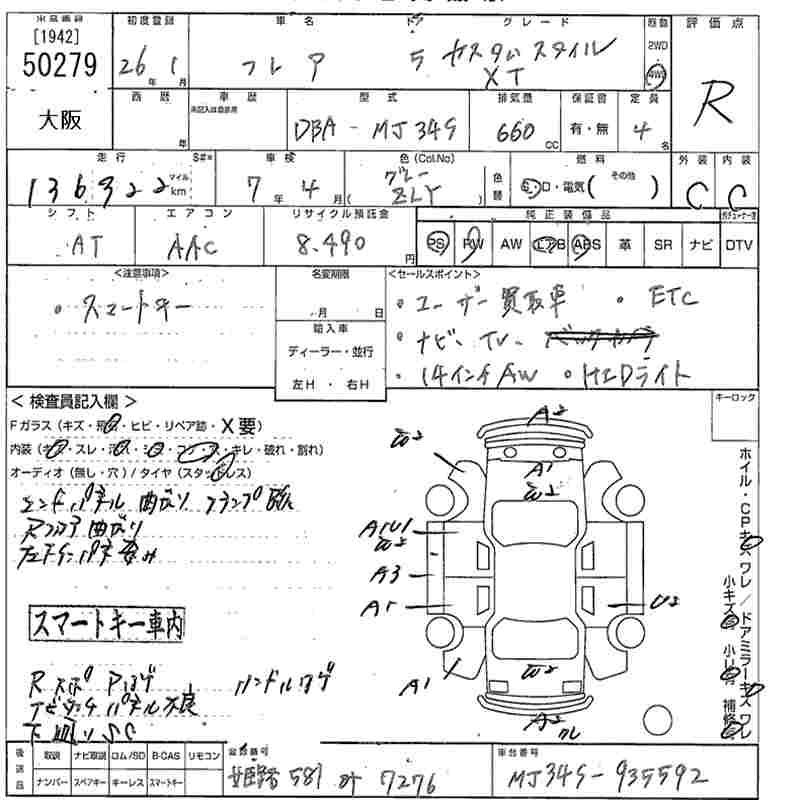 [1942]
50279
大阪
初度登録
26年 1月
車名
フレア
ドア
5
グレード
カスタムスタイル
XT
駆動
2WD
4WD
評価点
R
西暦
年
車歴
型式
DBA-MJ34S
排気量
660 CC
保証書
有・無
定員
4名
走行
S#※
136322
マイル
km
車検
7年4月
色(Col.No)
グレー
ZLY
色替
燃料
ガソリン・電気( その他 )
外装
C
内装
C
シフト
AT
エアコン
AAC
リサイクル預託金
8.490円
純正装備品
PS PW AW エアB ABS 革 SR ナビ DTV
<注意事項>
・スマートキー
名変期限
月 日
輸入車
ディーラー・並行
左H・右H
<セールスポイント>
・ユーザー買取車 ・ETC
・ナビ・TV・
・14インチAW ・HIDライト
キーロック
<検査員記入欄>
Fガラス(キズ・飛石・ヒビ・リペア跡・X要)
内装(キズ・スレ・汚レ・シミ・コゲ・穴・キレ・破れ・割れ)
オーディオ(無し・穴)/タイヤ(スタッドレス)
エンドパネル曲がり
曲がり
スマートキー車内
ハンドルハゲ
下廻りSC
A2
W2
A1
W2
A1U1
W2
A3
A1
U2
A1
W2
A2
ワレ
ホイル・CPキズ ワレ / ドアミラーキズ ワレ
小キズ有 小U有 補修有
後送品
取説 ナビ取説 ロム/SD B-CAS リモコン
ナンバー スペアキー キーレス スマートキー
登録番号
姫路 581 か 7276
車台番号
MJ34S-935592